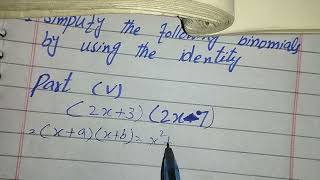 Simplify the following binomials
by using the identity
Part (v)
(2x+3)(2x-7)
=(x+a)(x+b)=x²